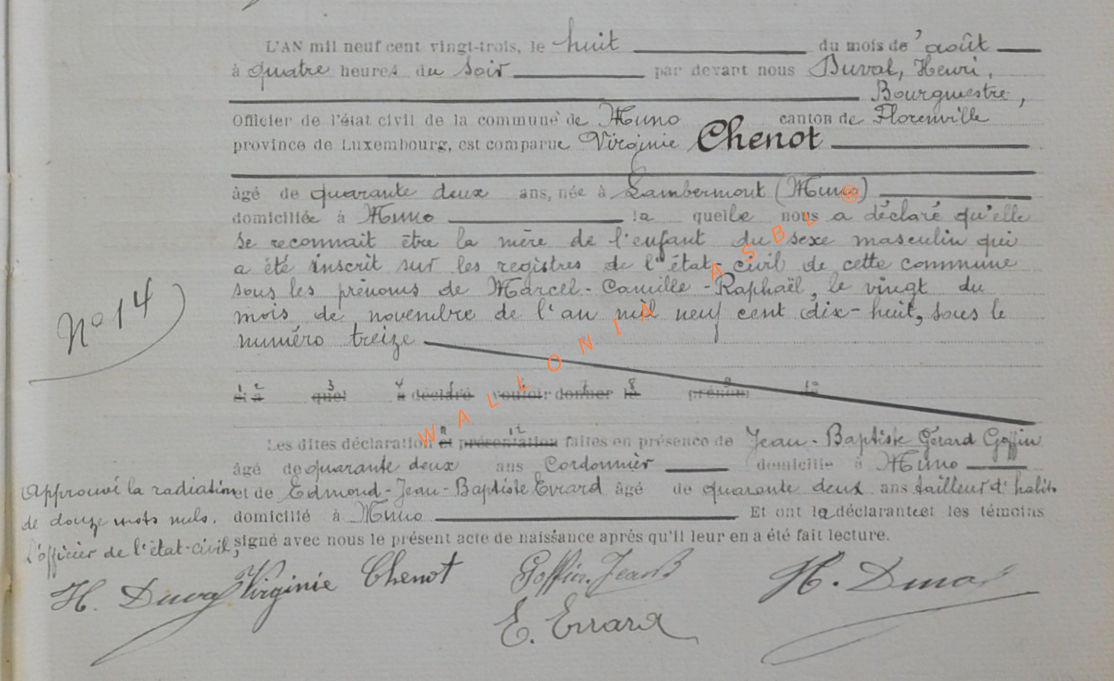 L'AN mil neuf cent vingt-trois, le huit du mois de août
à quatre heures du soir par devant nous Duval, Henri,
Bourgmestre,
Officier de l'état civil de la commune de Muno canton de Florenville
province de Luxembourg, est comparue Virginie Chenot
âgé de quarante deux ans, née à Lambermont (Muno)
domiciliée à Muno laquelle nous a déclaré qu'elle
se reconnait être la mère de l'enfant du sexe masculin qui
a été inscrit sur les registres de l'état-civil de cette commune
sous les prénoms de Marcel-Camille-Raphaël, le vingt du
N° 14
mois de novembre de l'an mil neuf cent dix-huit, sous le
numéro treize
1 2 3 4 5 6 7 8 9 10
et à quel a déclaré vouloir donner le prénom de
11 12
Les dites déclaration et présentation faites en présence de Jean-Baptiste Gérard Goffin
âgé de quarante deux ans Cordonnier domicilié à Muno
et de Edmond-Jean-Baptiste Evrard âgé de quarante deux ans tailleur d'habits
domicilié à Muno Et ont la déclarante et les témoins
signé avec nous le présent acte de naissance après qu'il leur en a été fait lecture.
Approuvé la radiation
de douze mots nuls.
L'officier de l'état-civil,
H. Duval Virginie Chenot Goffin Jean B H. Duval
E. Evrard
WALLONIA ASBL ©